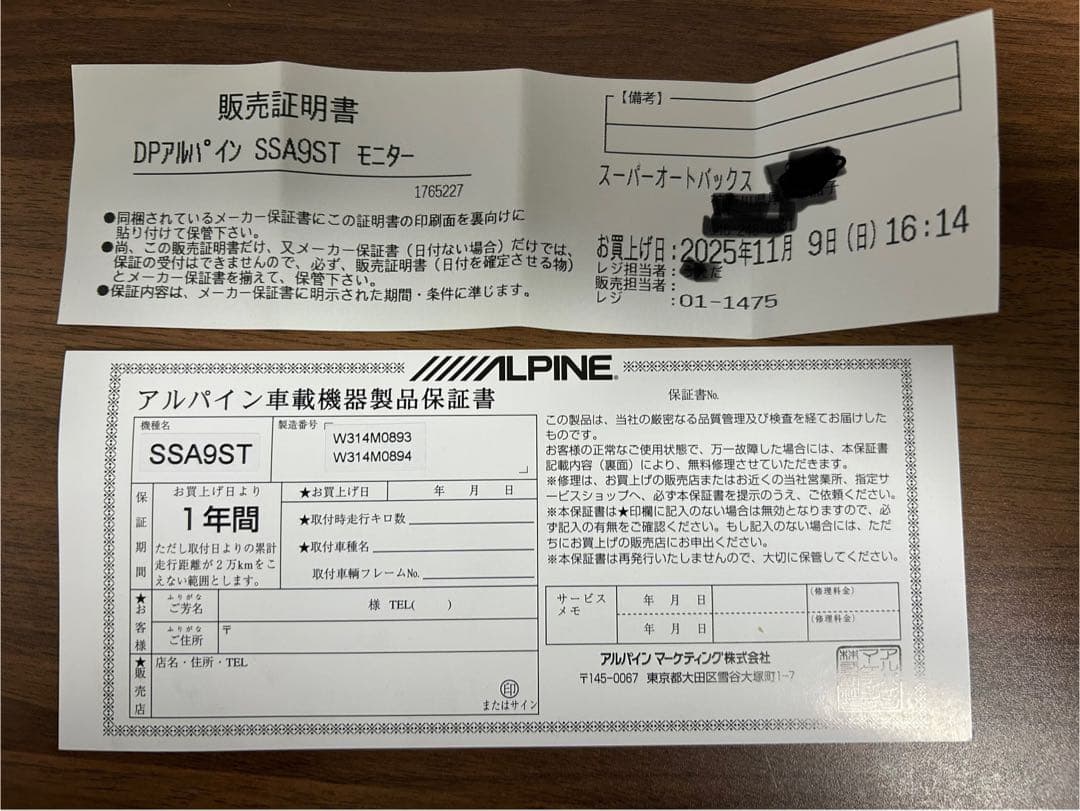 販売証明書
DPアルパイン SSA9ST モニター
1765227
●同梱されているメーカー保証書にこの証明書の印刷面を裏向けに
貼り付けて保管下さい。
●尚、この販売証明書だけ、又メーカー保証書（日付ない場合）だけでは、
保証の受付はできませんので、必ず、販売証明書（日付を確定させる物）
とメーカー保証書を揃えて、保管下さい。
●保証内容は、メーカー保証書に明示された期間・条件に準じます。
【備考】
スーパーオートバックス
お買上げ日：2025年11月 9日（日）16：14
レジ担当者：
販売担当者：
レジ ：01-1475
ALPINE®
アルパイン車載機器製品保証書
保証書No.
機種名
SSA9ST
製造番号
W314M0893
W314M0894
保証期間
お買上げ日より
1年間
ただし取付日よりの累計
走行距離が2万kmをこ
えない範囲とします。
★お買上げ日 年 月 日
★取付時走行キロ数
★取付車種名
取付車輌フレームNo.
★お客様
ふりがな
ご芳名
様 TEL( )
ふりがな
ご住所
〒
★販売店
店名・住所・TEL
印
またはサイン
この製品は、当社の厳密なる品質管理及び検査を経てお届けした
ものです。
お客様の正常なご使用状態で、万一故障した場合には、本保証書
記載内容（裏面）により、無料修理させていただきます。
※修理は、お買上げの販売店またはお近くの当社営業所、指定サ
ービスショップへ、必ず本保証書を提示のうえ、ご依頼ください。
※本保証書は★印欄に記入のない場合は無効となりますので、必
ず記入の有無をご確認ください。もし記入のない場合には、ただ
ちにお買上げの販売店にお申出ください。
※本保証書は再発行いたしませんので、大切に保管してください。
サービス
メモ
年 月 日
（修理料金）
年 月 日
（修理料金）
アルパイン マーケティング株式会社
〒145-0067 東京都大田区雪谷大塚町1-7